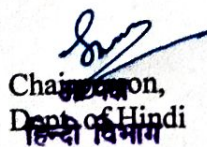 Chairperson,
अध्यक्ष
Dept. of Hindi
हिन्दी विभाग